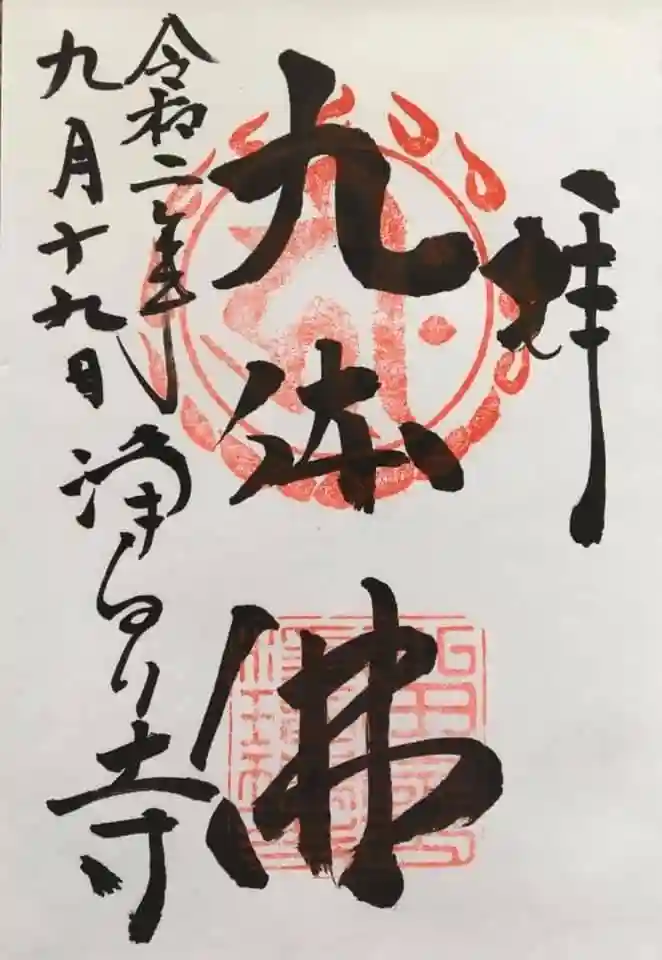 拝
九体佛
令和二年
九月十九日
浄るり寺